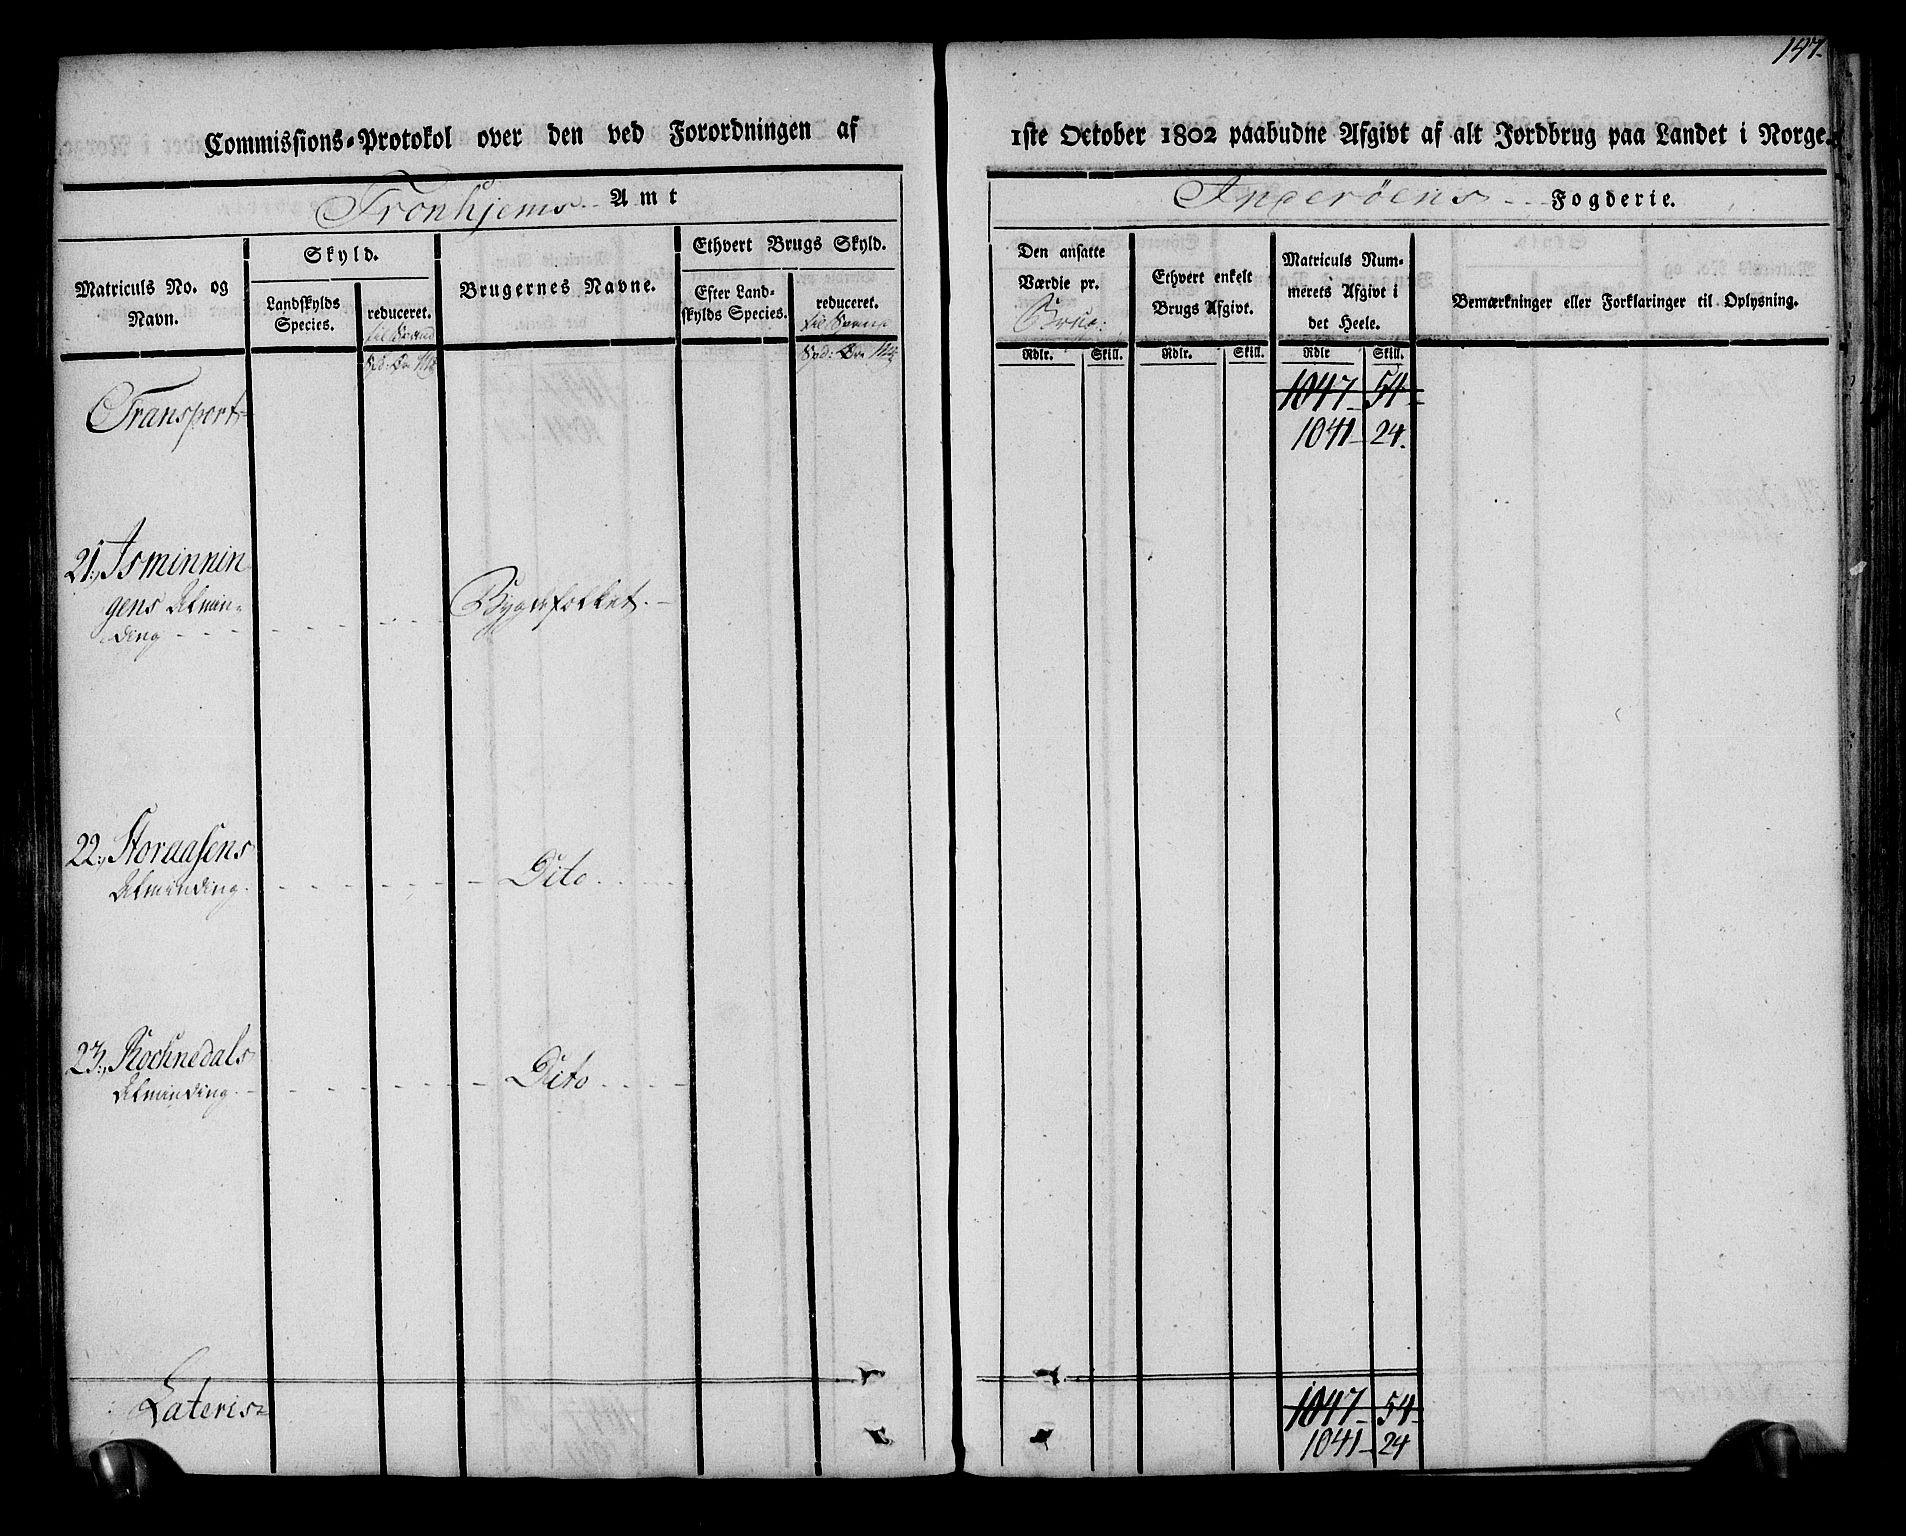 147.
Commissions-Protokol over den ved Forordningen af
1ste October 1802 paabudne Afgivt af alt Jordbrug paa Landet i Norge.
Tronhjems Amt
Inderöens Fogderie.
Matriculs No. og
Navn.
Skyld.
Landskylds
Species.
reduceret.
Brugernes Navne.
Ethvert Brugs Skyld.
Efter Land-
skylds Species.
reduceret.
Den ansatte
Værdie pr.
Ethvert enkelt
Brugs Afgivt.
Matriculs Num-
merets Afgivt i
det Heele.
Bemærkninger eller Forklaringer til Oplysning.
Rdlr. Skill. Rdlr. Skill. Rdlr Skill.
Transport
1047 54
1041 24.
21., Isminnin
gens Almin-
ding
Bygdefolket.
22., Storaasens
Alminding.
Dito.
23., Rochnedals
Alminding.
Dito
Lateris
1047 54
1041 24